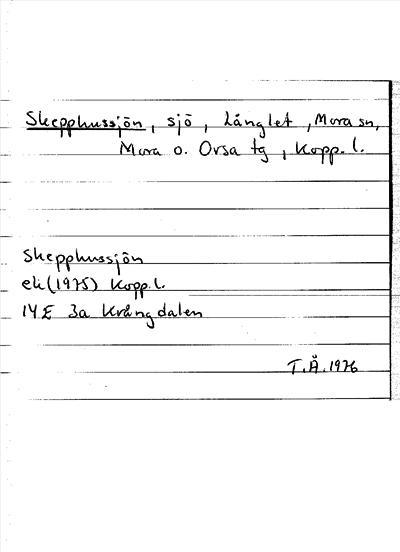 Skepphussjön, sjö, Långlet, Mora sn,
Mora o. Orsa tg, Kopp. l.
Skepphussjön
ek (1975) Kopp. l.
14E 3a Krångdalen
T.Å. 1976